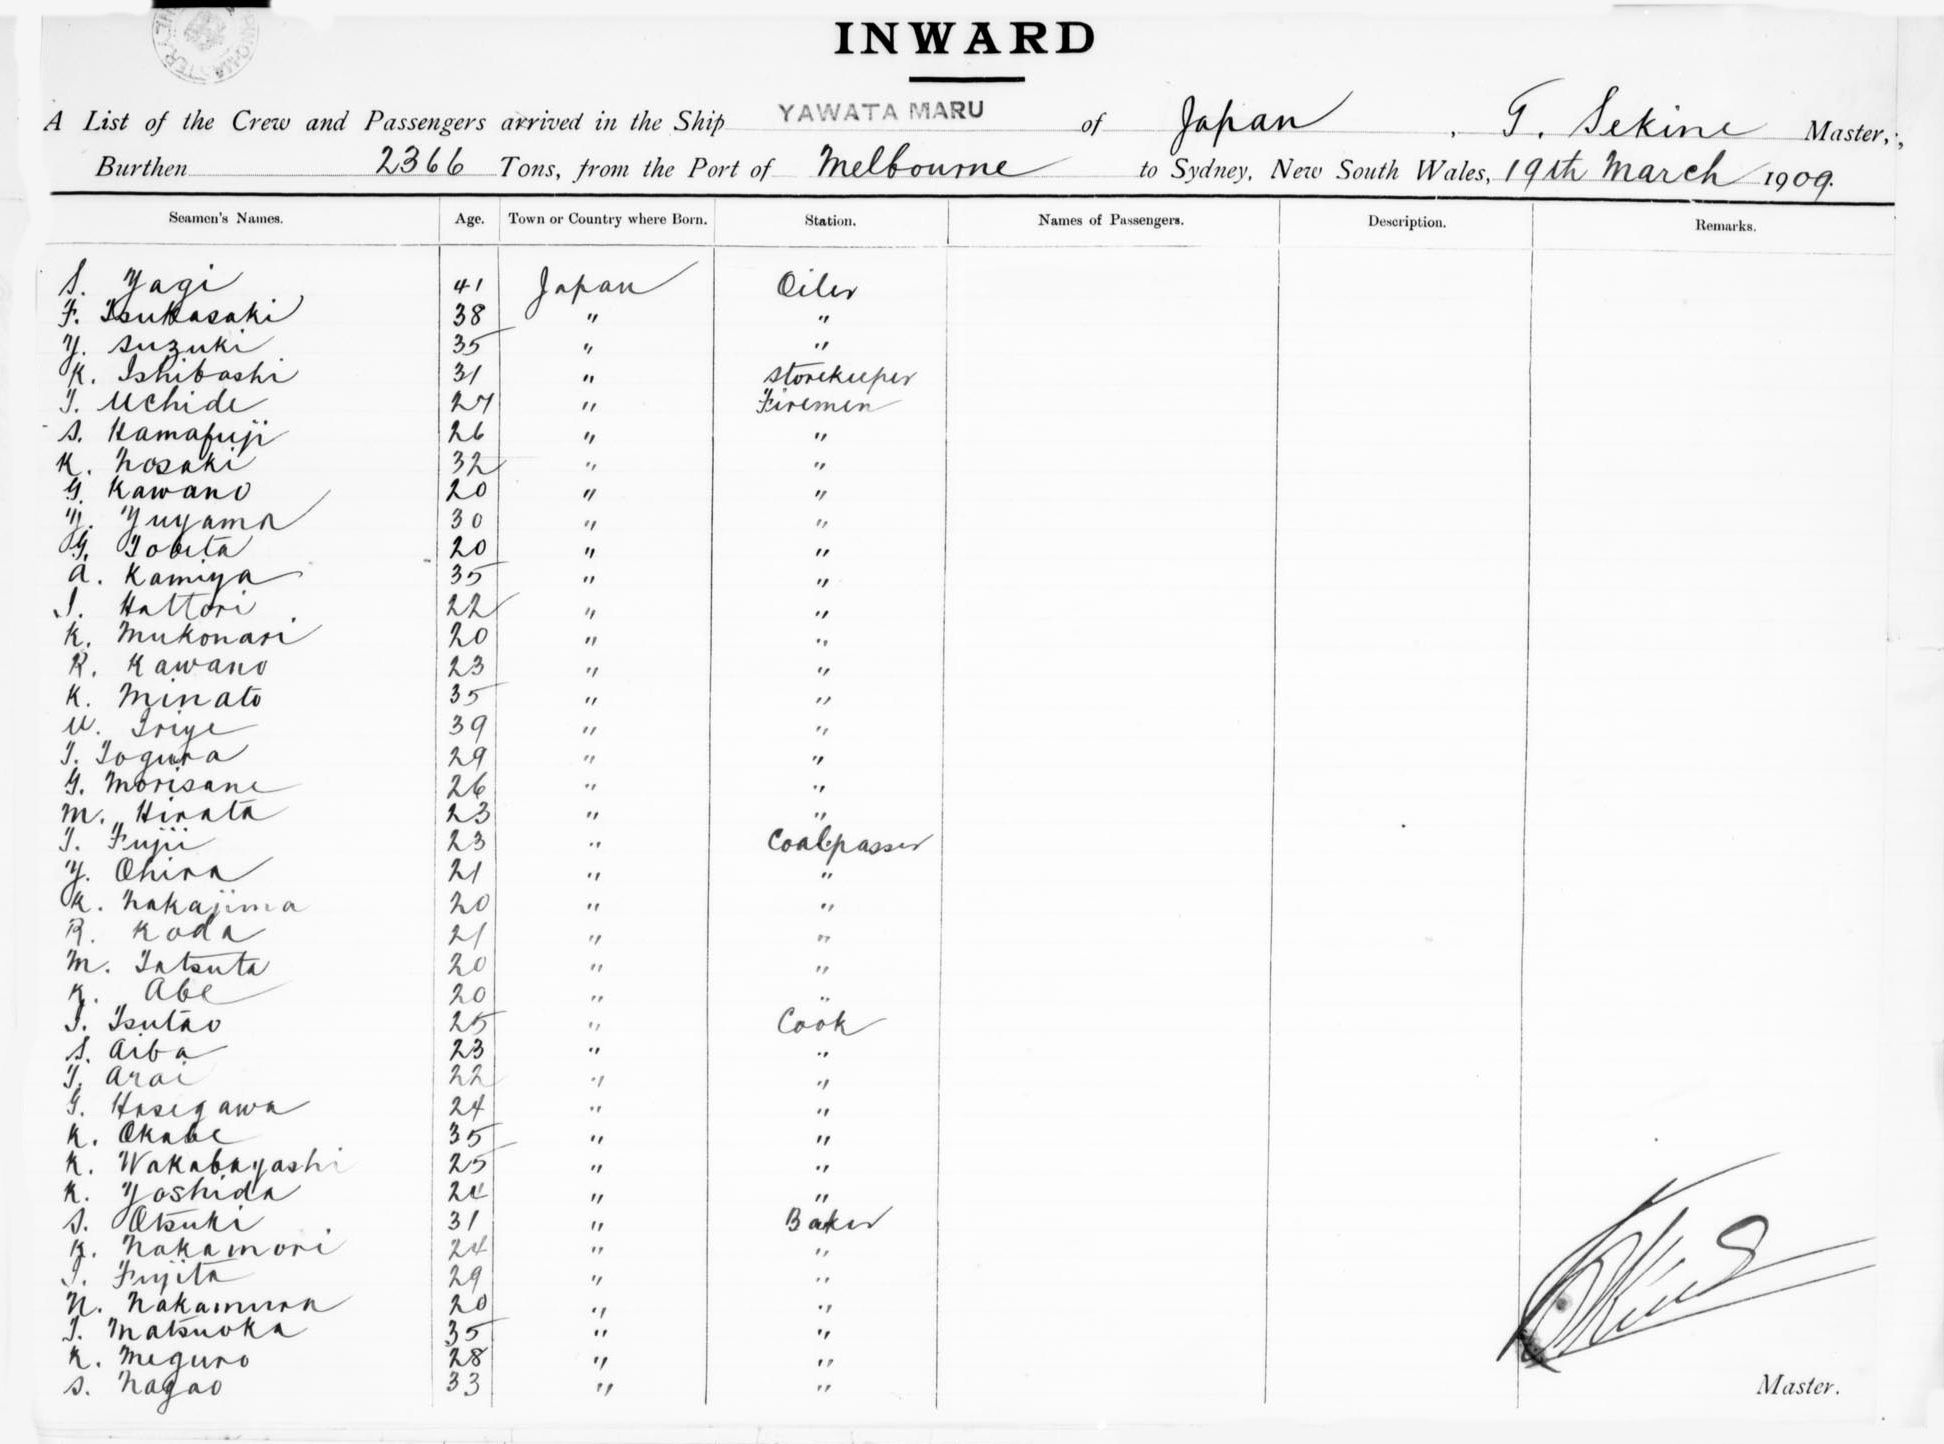 INWARD
A List of the Crew and Passengers arrived in the Ship YAWATA MARU of Japan, T. Sekine Master,;
Burthen 2366 Tons, from the Port of Melbourne to Sydney, New South Wales, 19th March 1909.
Seamen's Names. Age. Town or Country where Born. Station. Names of Passengers. Description. Remarks.
S. Yagi 41 Japan Oiler
F. Tsukasaki 38 " "
Y. Suzuki 35 " "
K. Ishibashi 31 " Storekeeper
T. Uchide 27 " Firemen
S. Kamafuji 26 " "
K. Nosaki 32 " "
G. Kawano 20 " "
Y. Yuyama 30 " "
G. Tobita 20 " "
A. Kamiya 35 " "
I. Hattori 22 " "
K. Mukonari 20 " "
R. Kawano 23 " "
K. Minato 35 " "
U. Iriye 39 " "
T. Togura 29 " "
G. Morisane 26 " "
M. Hirata 23 " "
T. Fujii 23 " Coalpasser
Y. Ohira 21 " "
K. Nakajima 20 " "
R. Koda 21 " "
M. Tatsuta 20 " "
K. Abe 20 " "
T. Tsutao 25 " Cook
S. Aiba 23 " "
T. Arai 22 " "
G. Hasegawa 24 " "
K. Okabe 35 " "
K. Wakabayashi 25 " "
K. Yoshida 24 " "
S. Otsuki 31 " Baker
K. Nakamori 24 " "
T. Fujita 29 " "
N. Nakamura 20 " "
T. Matsuoka 35 " "
K. Meguro 28 " "
S. Nagao 33 " "
Master.